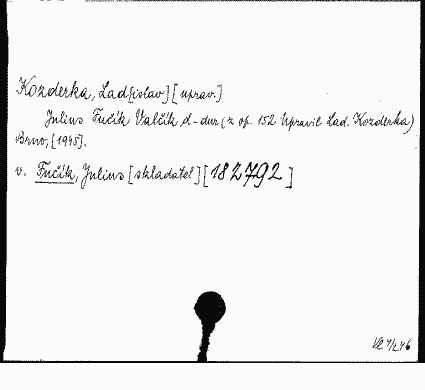 Kozderka, Lad[islav] [uprav.]
Julius Fučík Valčík d-dur (z op. 152 Upravil Lad. Kozderka)
Brno, [1945].
v. Fučík, Julius [skladatel] [182792]